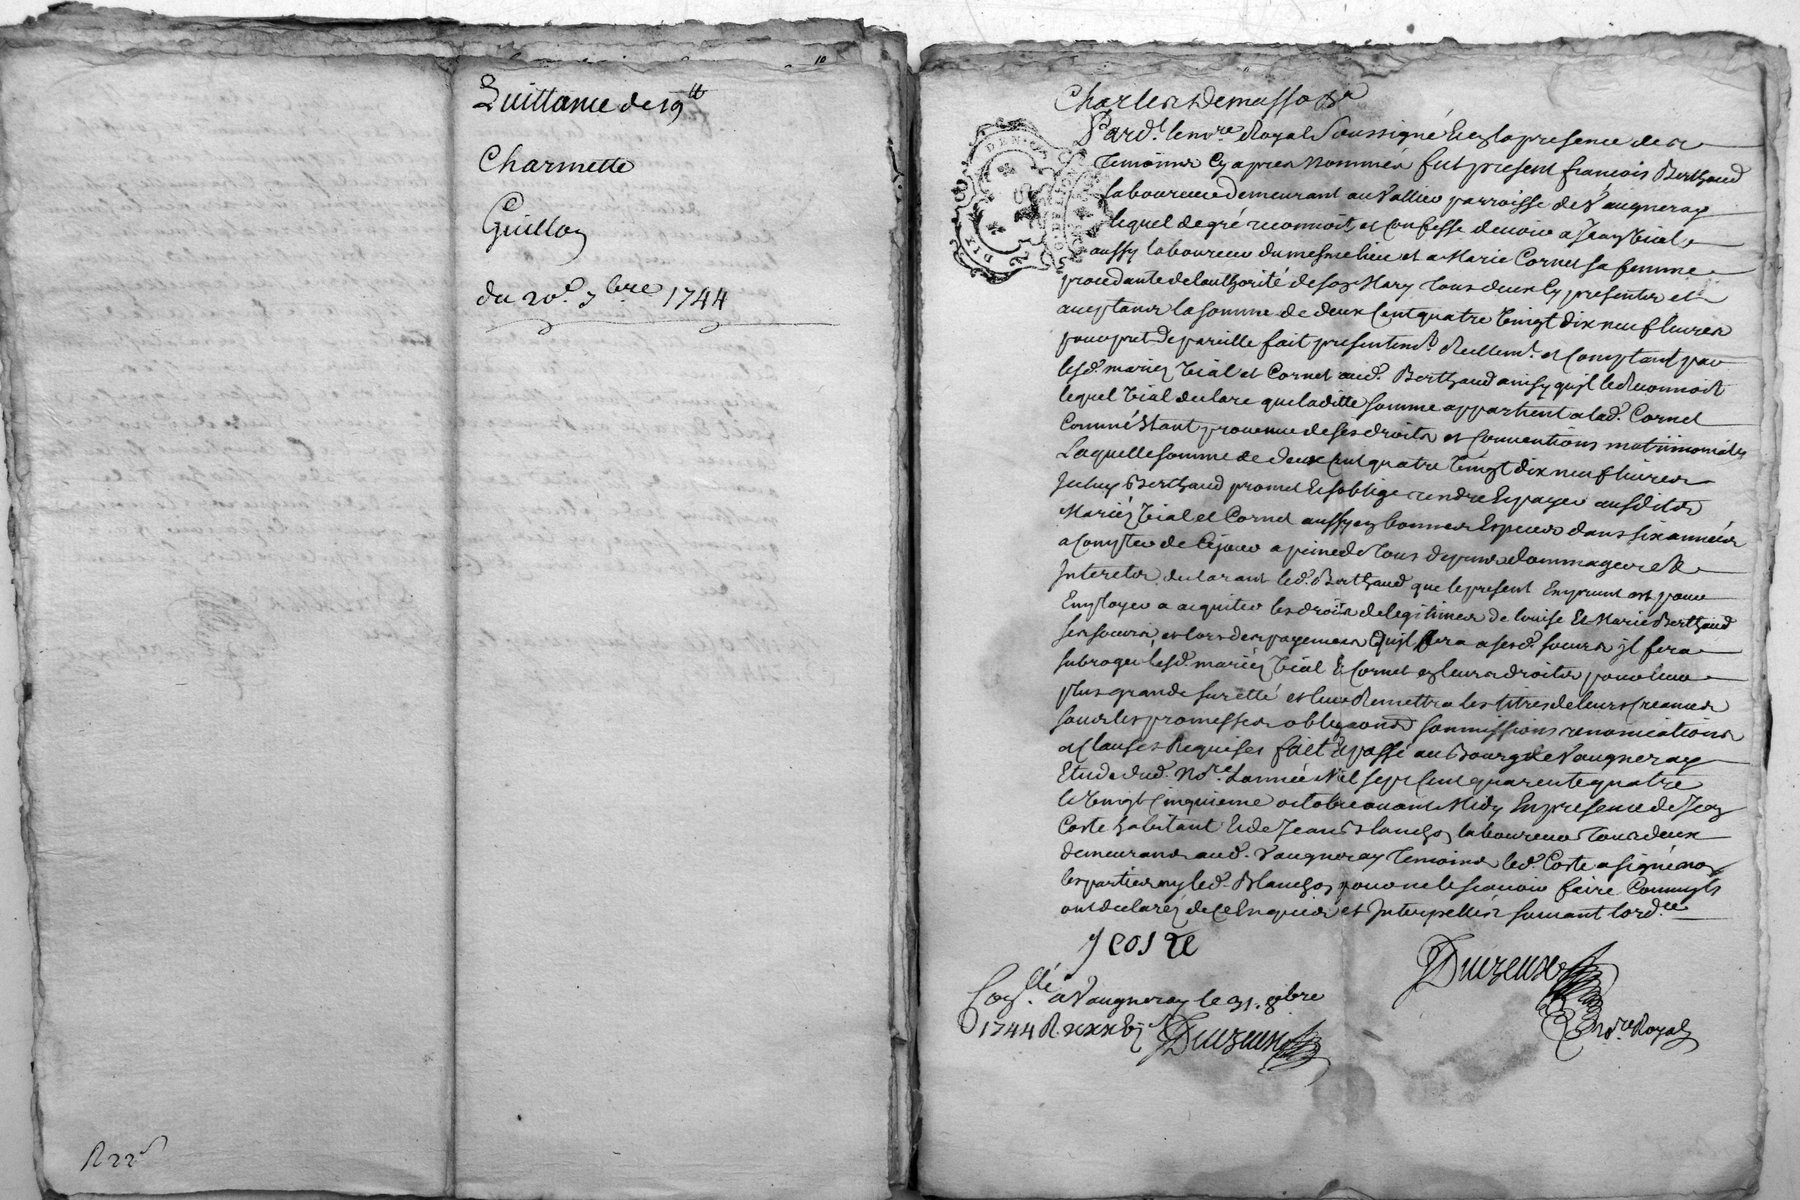 10
Quittance de 19lt
Charmette
Guillon
du 20e 7bre 1744
R 22s
Pard.t le no.re Royal soussigné Et en la presence des
temoins Cy apres nommés fut present francois Berthaud
laboureur demeurant au Vallier parroisse de Vaugneray
lequel de gré reconnoit et confesse devoir a Jean Vial
aussy laboureur du mesme lieu et a Marie Cornet sa femme
procedante de l'authorité de son Mary tous deux Cy presents et
acceptants la somme de deux Cent quatre Vingt dix neuf livres
pour pret de pareille fait presentem.t Reellem.t et Comptant par
lesd. mariez Vial et Cornet aud. Berthaud ainsy qu'jl le Reconnoit
lequel Vial declare que laditte somme appartient a lad. Cornet
Comme Estant provenue de ses droits et conventions matrimoniales
Laquelle somme de deux Cent quatre Vingt dix neuf livres
Jceluy Berthaud promet Et s'oblige rendre Et payer ausdits
Mariez Vial et Cornet aussy en bonnes Especes dans six années
a Compter de Ce jour a peine de tous depens dommages Et
Jnterets, declarant led. Berthaud que le present Emprunt est pour
Employer a acquiter les droits de legitimes de louise Et Marie Berthaud
ses soeurs et lors des payemens qu'jl fera a sesd. soeurs jl fera
subroger lesd. mariez Vial Et Cornet en leurs droits pour leur
plus grande suretté et leur Remettra les titres de leurs creances
sous les promesses obligaons soumissions renonciations
et clauses Requises fait Et passé au Bourg de Vaugneray
Etude dud. No.re L'année Mil sept Cent quarente quatre
le Vingt Cinquieme octobre avant Midy En presence de Jean
Coste habitant Et de Jean Blanchon laboureur tous deux
demeurans aud. Vaugneray temoins led. Coste a signé non
les parties ny led. Blanchon pour ne le scavoir faire Comme jls
ont declaré de Ce Enquis et Jnterpellés suivant l'ord.ce
j COSTE
Duizeux
no.re Royal
Con.llé a Vaugneray le 31. 8bre
1744 R.
Duizeux